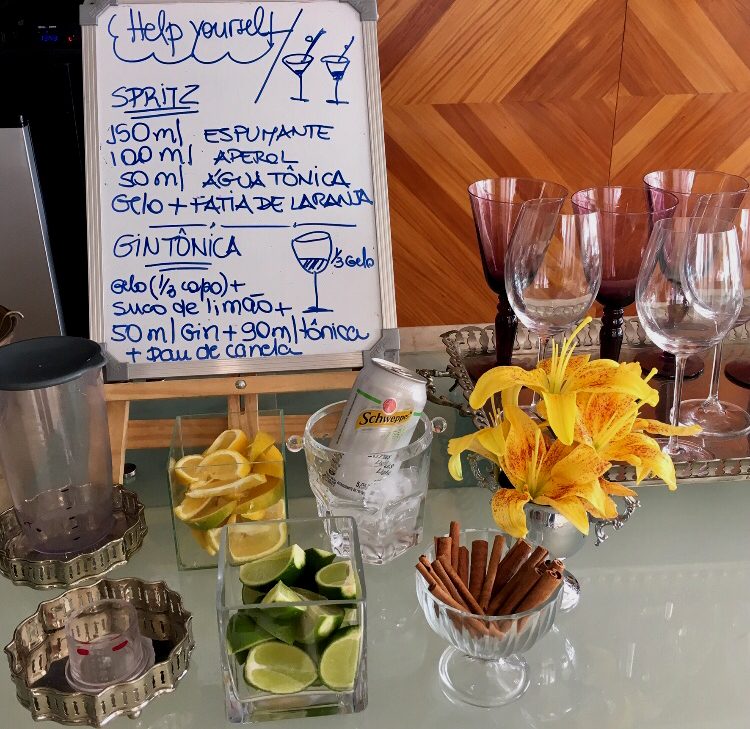 Help yourself
SPRITZ
150ml ESPUMANTE
100ml APEROL
50ml ÁGUA TÔNICA
Gelo + FATIA DE LARANJA
GIN TÔNICA
1/3 Gelo
Gelo (1/3 copo) +
suco de limão +
50ml Gin + 90ml tônica
+ pau de canela
Schweppes